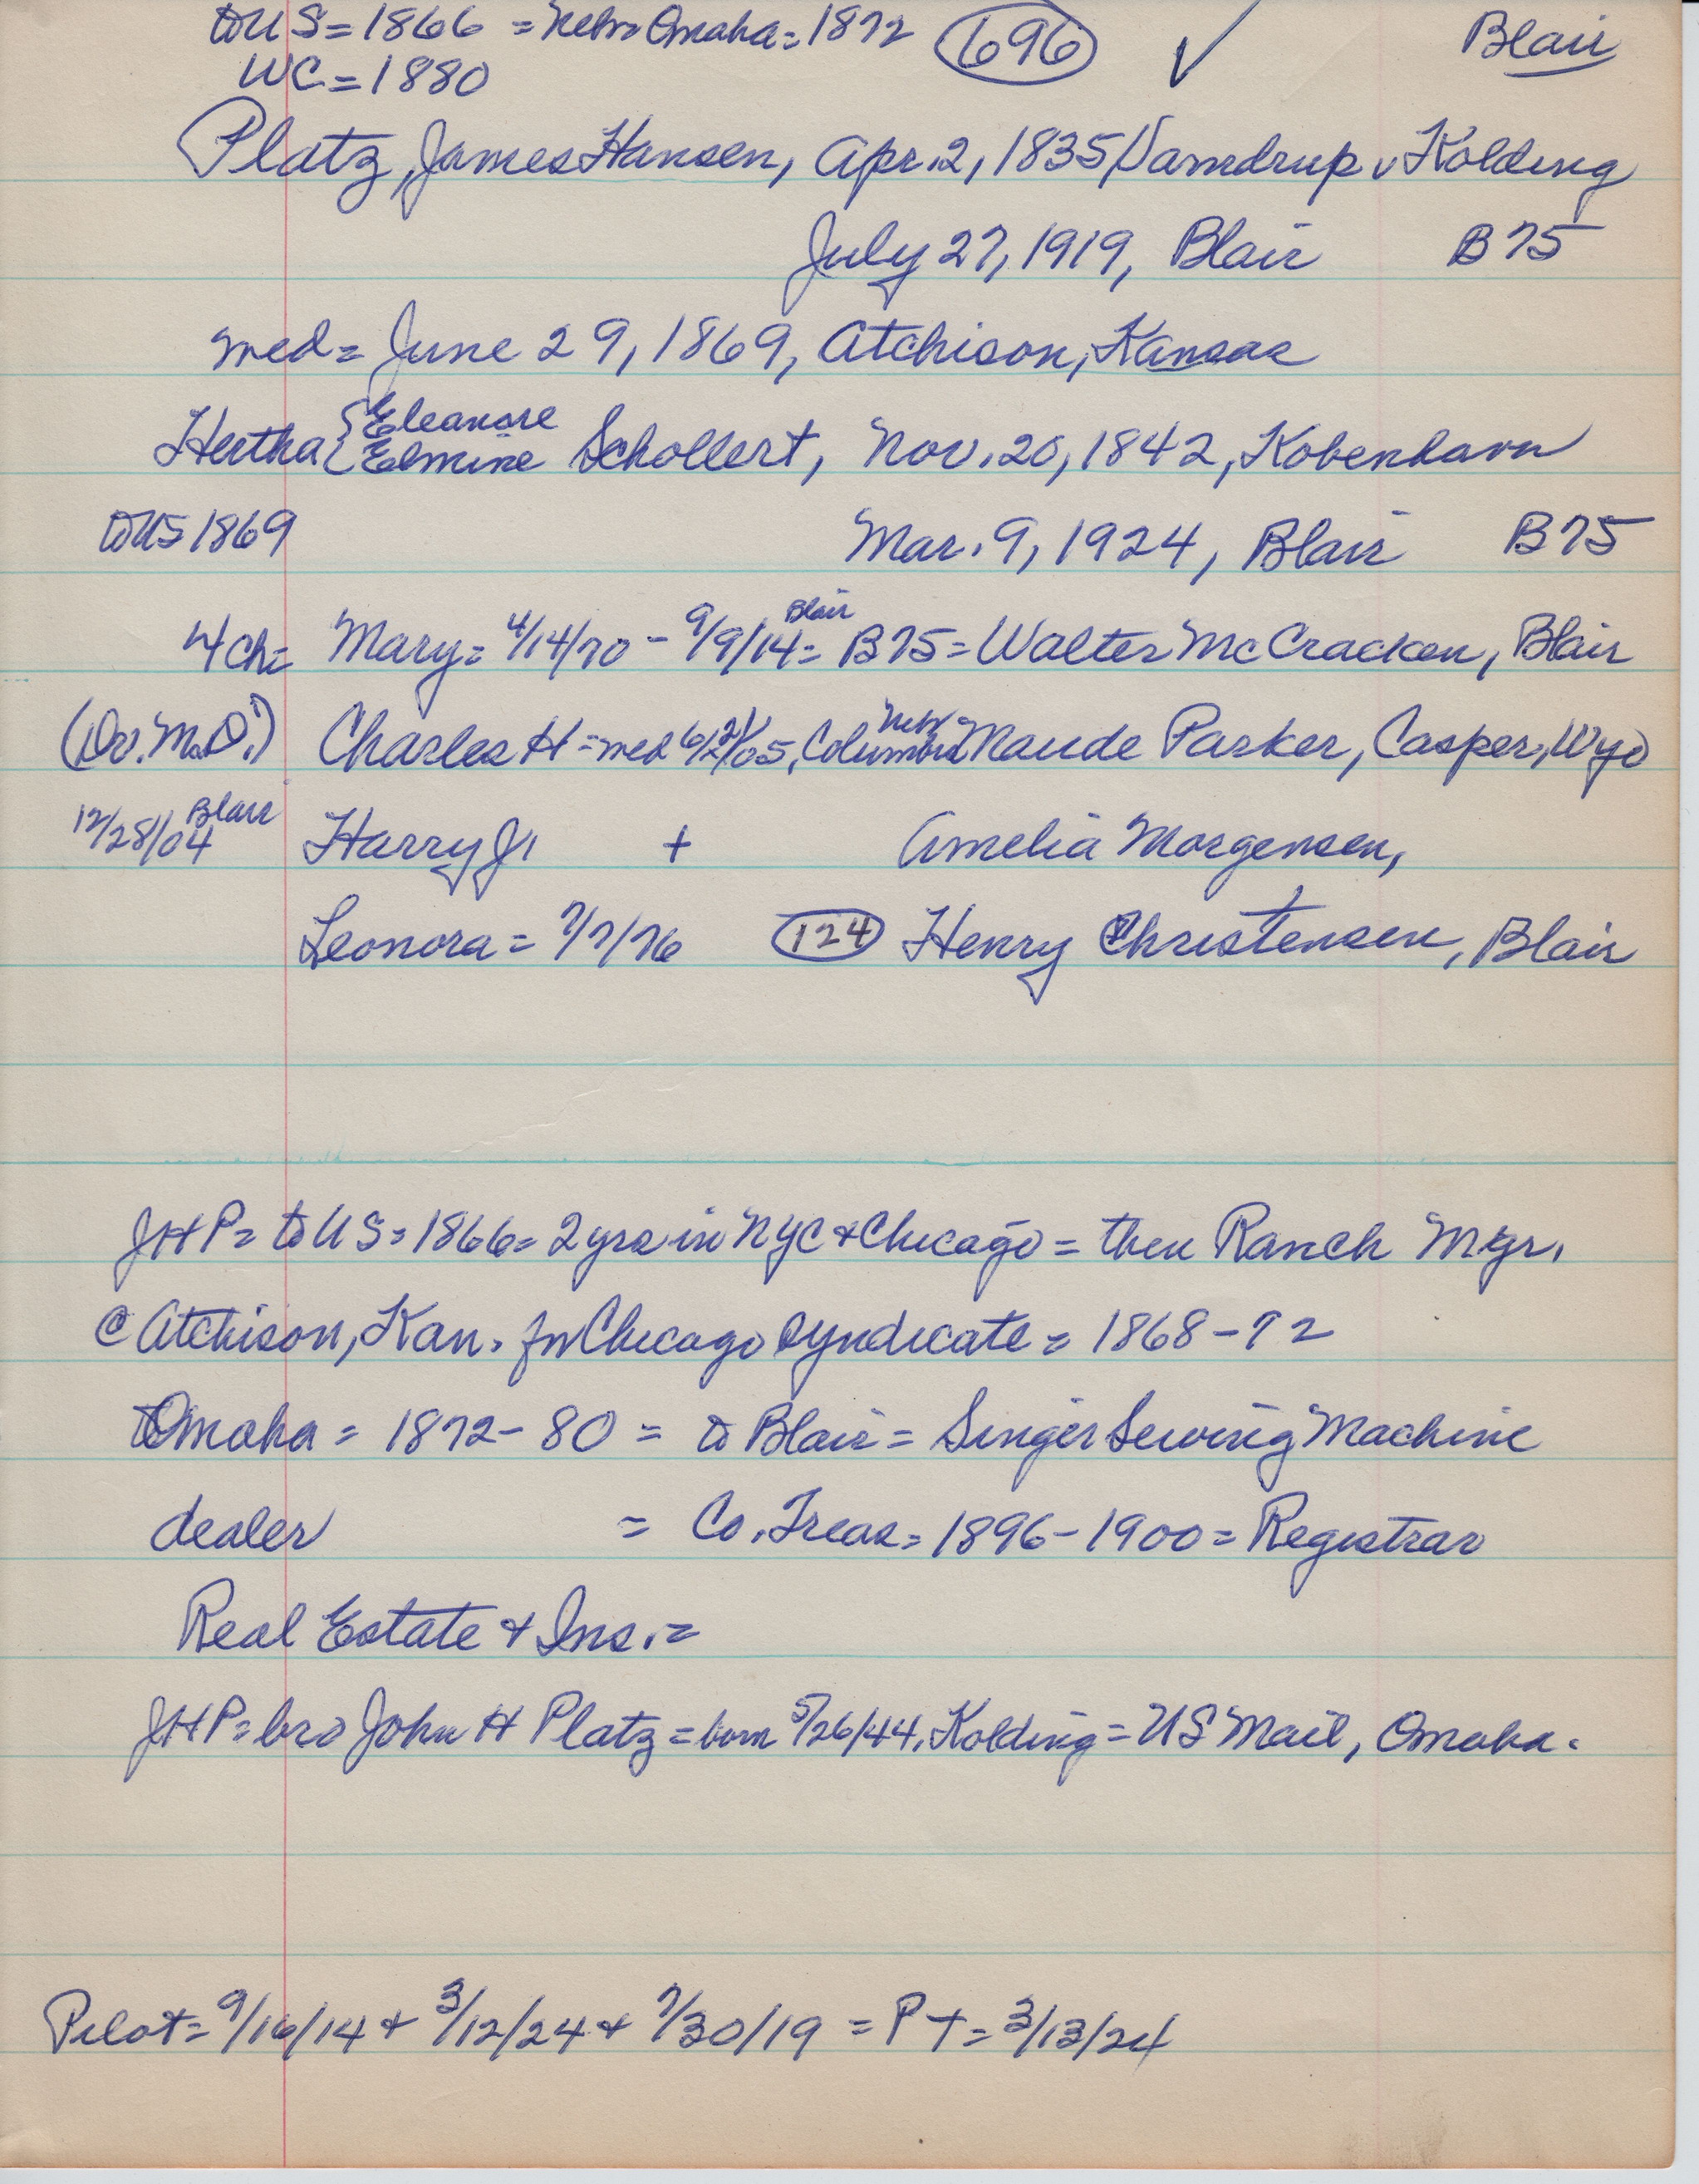 to US = 1866 = Nebr Omaha = 1872 696 ✓ Blair
WC = 1880
Platz, James Hansen, Apr. 2, 1835 Vamdrup v Kolding
July 27, 1919, Blair B75
med = June 29, 1869, Atchison, Kansas
Hertha { Eleanore
Elmine Schollert, Nov. 20, 1842, Kobenhavn
to US 1869 Mar. 9, 1924, Blair B75
4 ch = Mary = 4/14/70 - 9/9/14 = Blair B75 = Walter McCracken, Blair
(Dr. M.D.) Charles H = med 6/21/05, Nebr Maude Parker, Casper, Wyo
12/28/04 Blair Harry J. + Amelia Morgensen,
Leonora = 7/7/76 124 Henry Christensen, Blair
JHP = to US = 1866 = 2 yrs in NYC + Chicago = then Ranch Mgr.
@ Atchison, Kan. for Chicago Syndicate = 1868-72
to Omaha = 1872-80 = to Blair = Singer Sewing Machine
dealer = Co. Treas = 1896-1900 = Registrar
Real Estate + Ins. =
JHP = bro John H Platz = born 5/26/44, Kolding = US Mail, Omaha.
Pilot = 9/16/14 + 3/12/24 + 7/30/19 = PT = 3/13/24